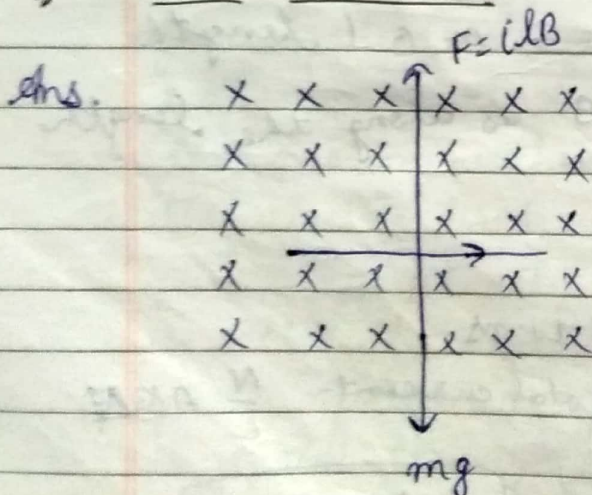 F = ilB
Ans. X X X X X X
X X X X X X
X X X X X X
X X X X X X
X X X X X X
mg